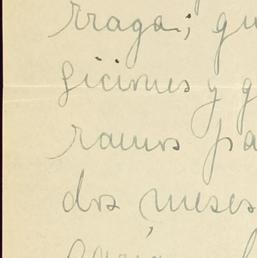 rraga; qu
siciones y g
ramos pa
dos meses